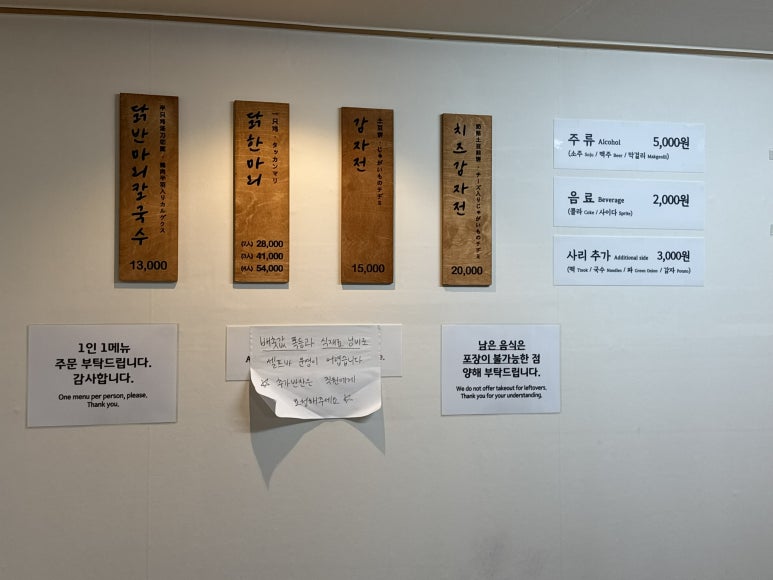 닭반마리칼국수
13,000
닭한마리
一只鸡 · タッカンマリ
(2人) 28,000
(3人) 41,000
(4人) 54,000
감자전
土豆饼 · じゃがいものチヂミ
15,000
치즈감자전
奶酪土豆煎饼 · チーズ入りじゃがいものチヂミ
20,000
주 류 Alcohol 5,000원
(소주 Soju / 맥주 Beer / 막걸리 Makgeolli)
음 료 Beverage 2,000원
(콜라 Coke / 사이다 Sprite)
사리 추가 Additional side 3,000원
(떡 Tteok / 국수 Noodles / 파 Green Onion / 감자 Potato)
1인 1메뉴
주문 부탁드립니다.
감사합니다.
One menu per person, please.
Thank you.
배춧값 폭등과 식재료 낭비로
셀프바 운영이 어렵습니다.
☆ 추가반찬은 직원에게
요청해주세요 ☆
남은 음식은
포장이 불가능한 점
양해 부탁드립니다.
We do not offer takeout for leftovers.
Thank you for your understanding.